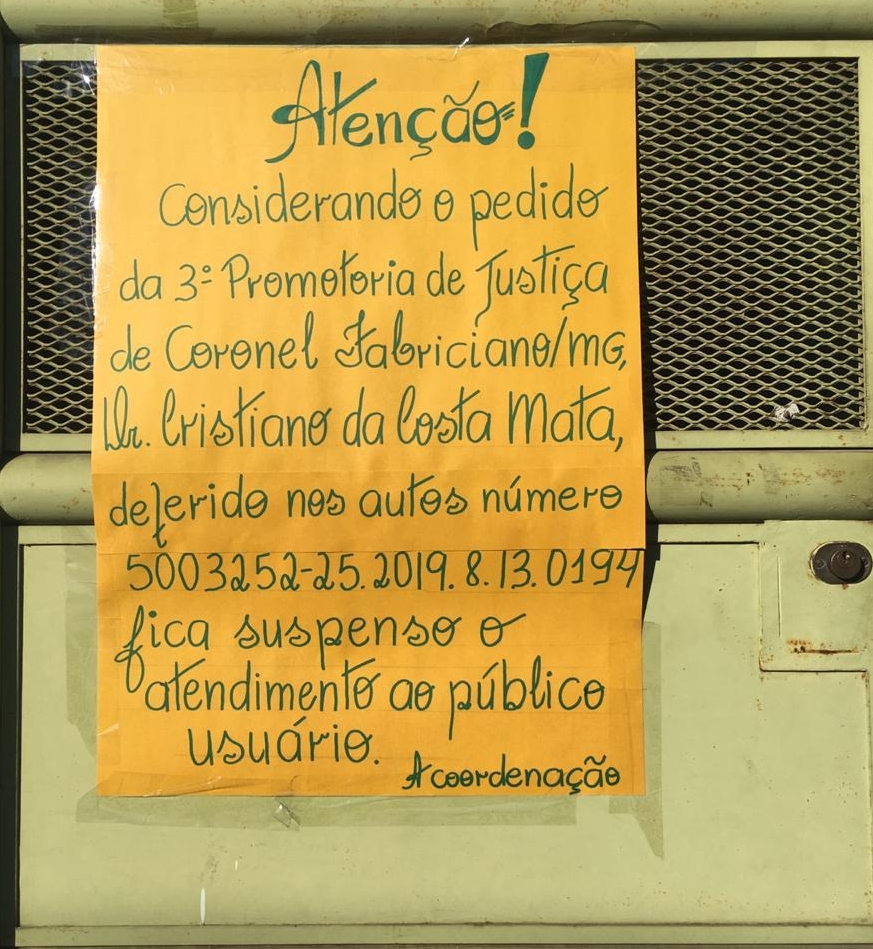 Atenção!
Considerando o pedido
da 3ª Promotoria de Justiça
de Coronel Fabriciano/MG,
Dr. Cristiano da Costa Mata,
deferido nos autos número
5003252-25.2019.8.13.0194
fica suspenso o
atendimento ao público
usuário.
A coordenação